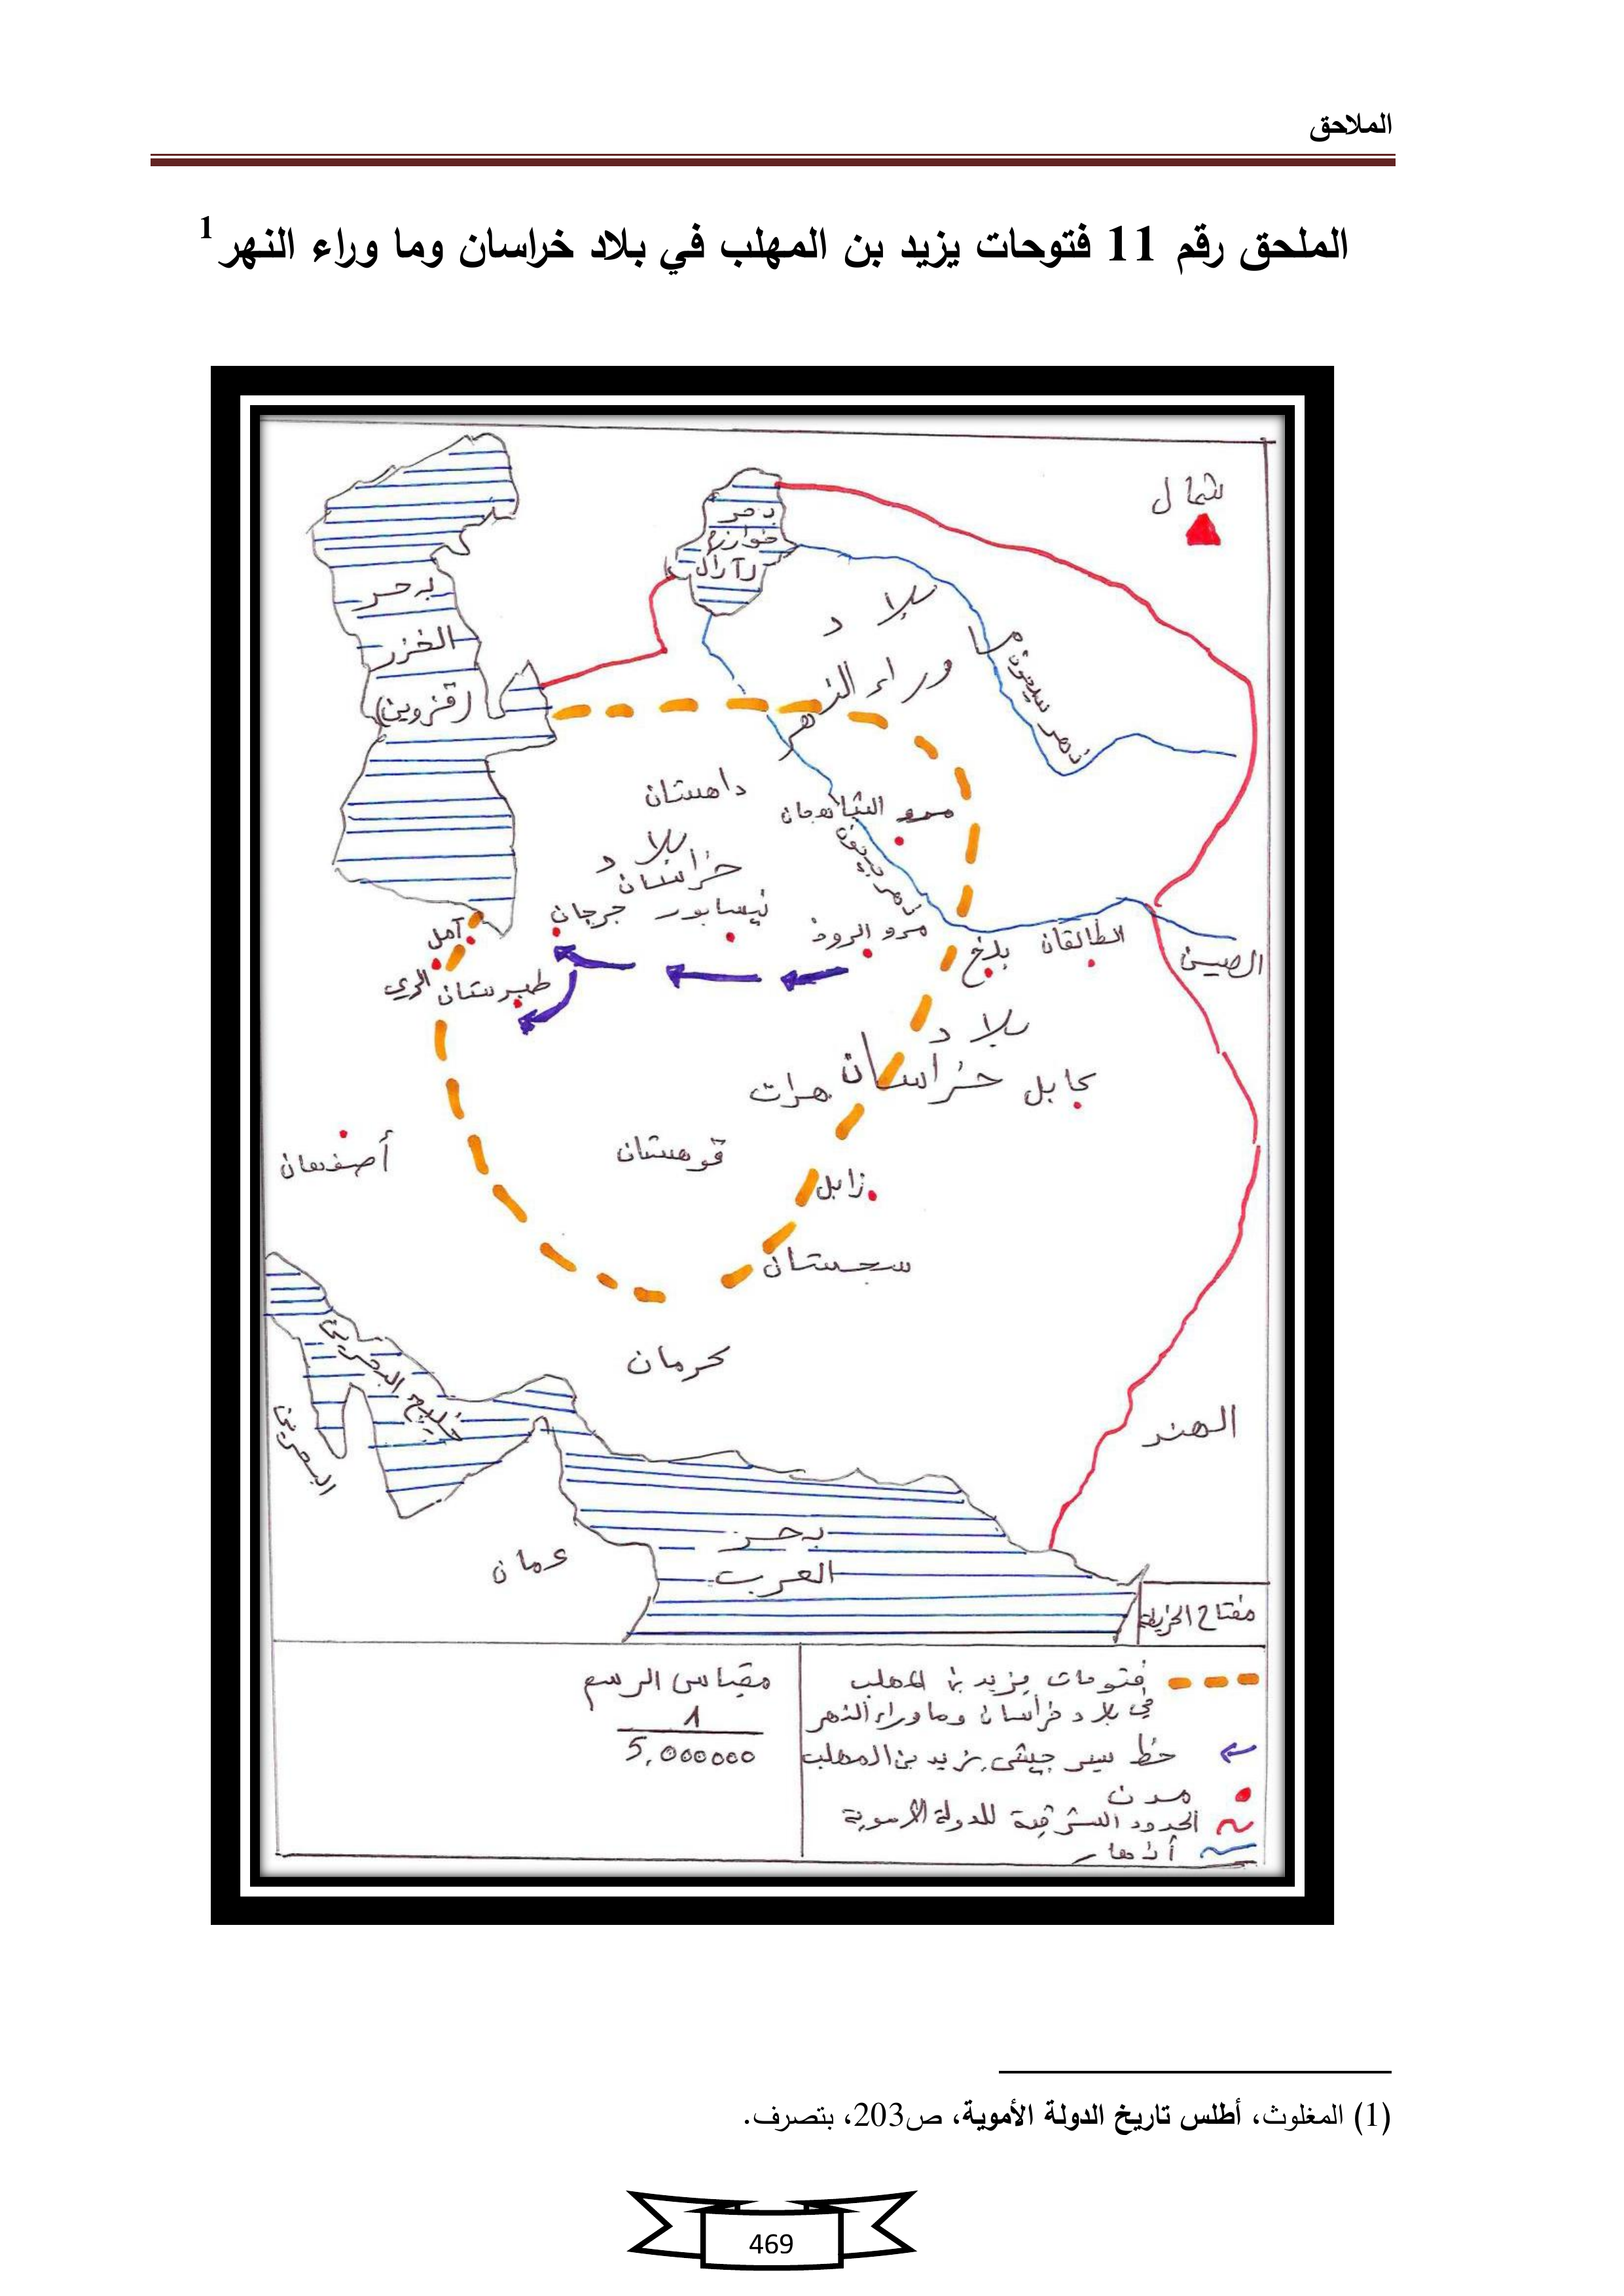 الملاحق
الملحق رقم 11 فتوحات يزيد بن المهلب في بلاد خراسان وما وراء النهر 1
شمال
بحر
خوارزم
آرال
بحر
الخزر
(قزوين)
بلاد
ما
وراء النهر
نهر سيحون
داهستان
مرو الشاهجان
نهر جيحون
بلاد
خراسان
نيسابور
جرجان
مرو الروذ
آمل
الري
طبرستان
بلخ
الطالقان
الصين
بلاد
خراسان
هرات
كابل
أصفهان
قوهستان
زابل
سجستان
كرمان
خليج البحرين
البحرين
الهند
عمان
بحر
العرب
مفتاح الخريطة
فتوحات يزيد بن المهلب
في بلاد خراسان وما وراء النهر
خط سير جيش يزيد بن المهلب
مدن
الحدود الشرقية للدولة الأموية
أنهار
مقياس الرسم
1
5,000000
(1) المغلوث، أطلس تاريخ الدولة الأموية، ص203، بتصرف.
469